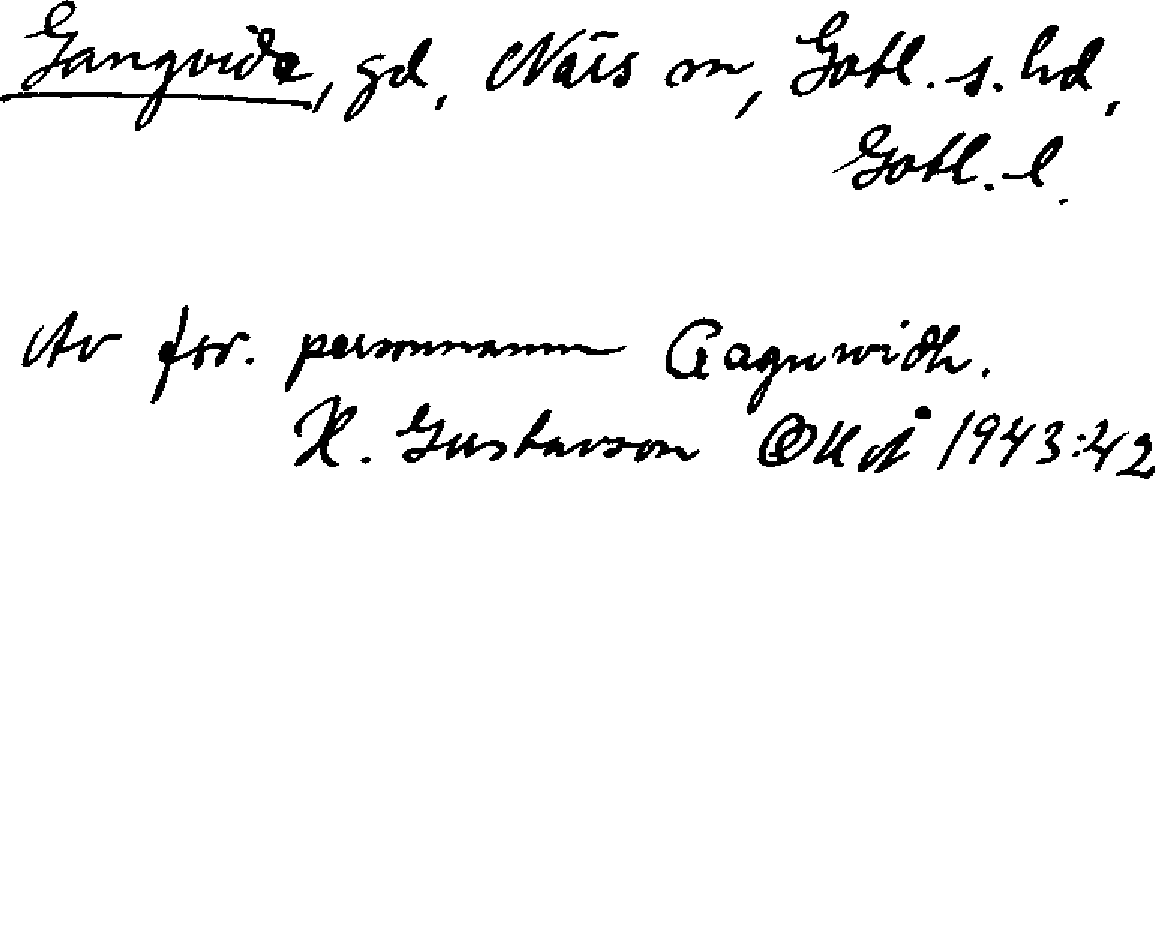 Gangvide, gd, Näs sn, Gotl. s. hd,
Gotl. l.
Av fsv. personnamn Gagnvidh.
H. Gustavson GKÅ 1943:42